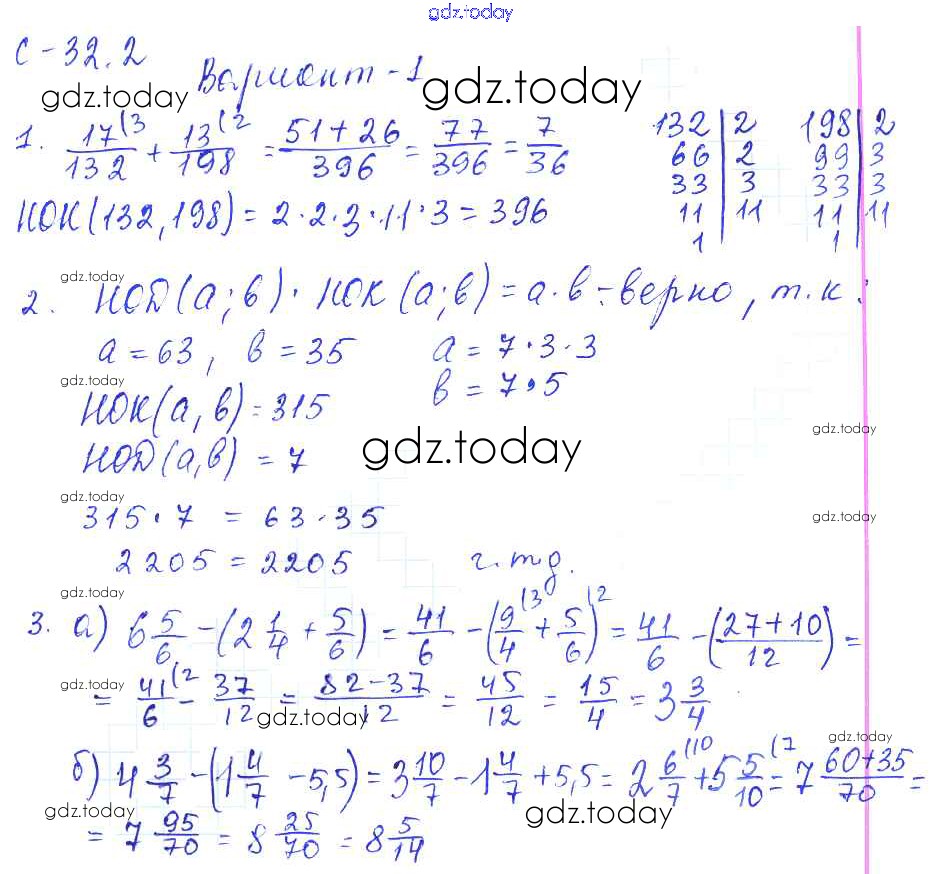 gdz.today
С-32.2
Вариант-1
gdz.today
gdz.today
1. 17(3/132 + 13(2/198 = 51+26/396 = 77/396 = 7/36
132 | 2 198 | 2
66 | 2 99 | 3
33 | 3 33 | 3
11 | 11 11 | 11
1 1
НОК(132,198) = 2·2·3·11·3 = 396
gdz.today
2. НОД(а;в)·НОК(а;в) = а·в - верно, т.к:
а = 63, в = 35 а = 7·3·3
gdz.today
в = 7·5
НОК(а,в) = 315
gdz.today
НОД(а,в) = 7
gdz.today
gdz.today
gdz.today
315·7 = 63·35
2205 = 2205 ч.тд.
gdz.today
3. а) 6 5/6 - (2 1/4 + 5/6) = 41/6 - (9(3/4 + 5/6)(2 = 41/6 - (27+10/12) =
gdz.today
= 41(2/6 - 37/12 = 82-37/12 = 45/12 = 15/4 = 3 3/4
gdz.today
gdz.today
б) 4 3/7 - (1 4/7 - 5,5) = 3 10/7 - 1 4/7 + 5,5 = 2 6(10/7 + 5 5(7/10 = 7 60+35/70 =
gdz.today
gdz.today
= 7 95/70 = 8 25/70 = 8 5/14